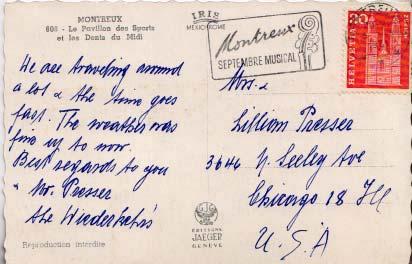 MONTREUX
608 - Le Pavillon des Sports
et les Dents du Midi
We are traveling around
a lot & the time goes
fast. The weather was
fine up to now.
Best regards to you
& Mr. Presser
the Wiederkehr's
Reproduction interdite
IRIS
MEXICHROME
Montreux
SEPTEMBRE MUSICAL
20
HELVETIA
Mrs.
Lillian Presser
3646 N. Seeley Ave
Chicago 18 Ill
U.S.A
EDITIONS
JAEGER
GENÈVE